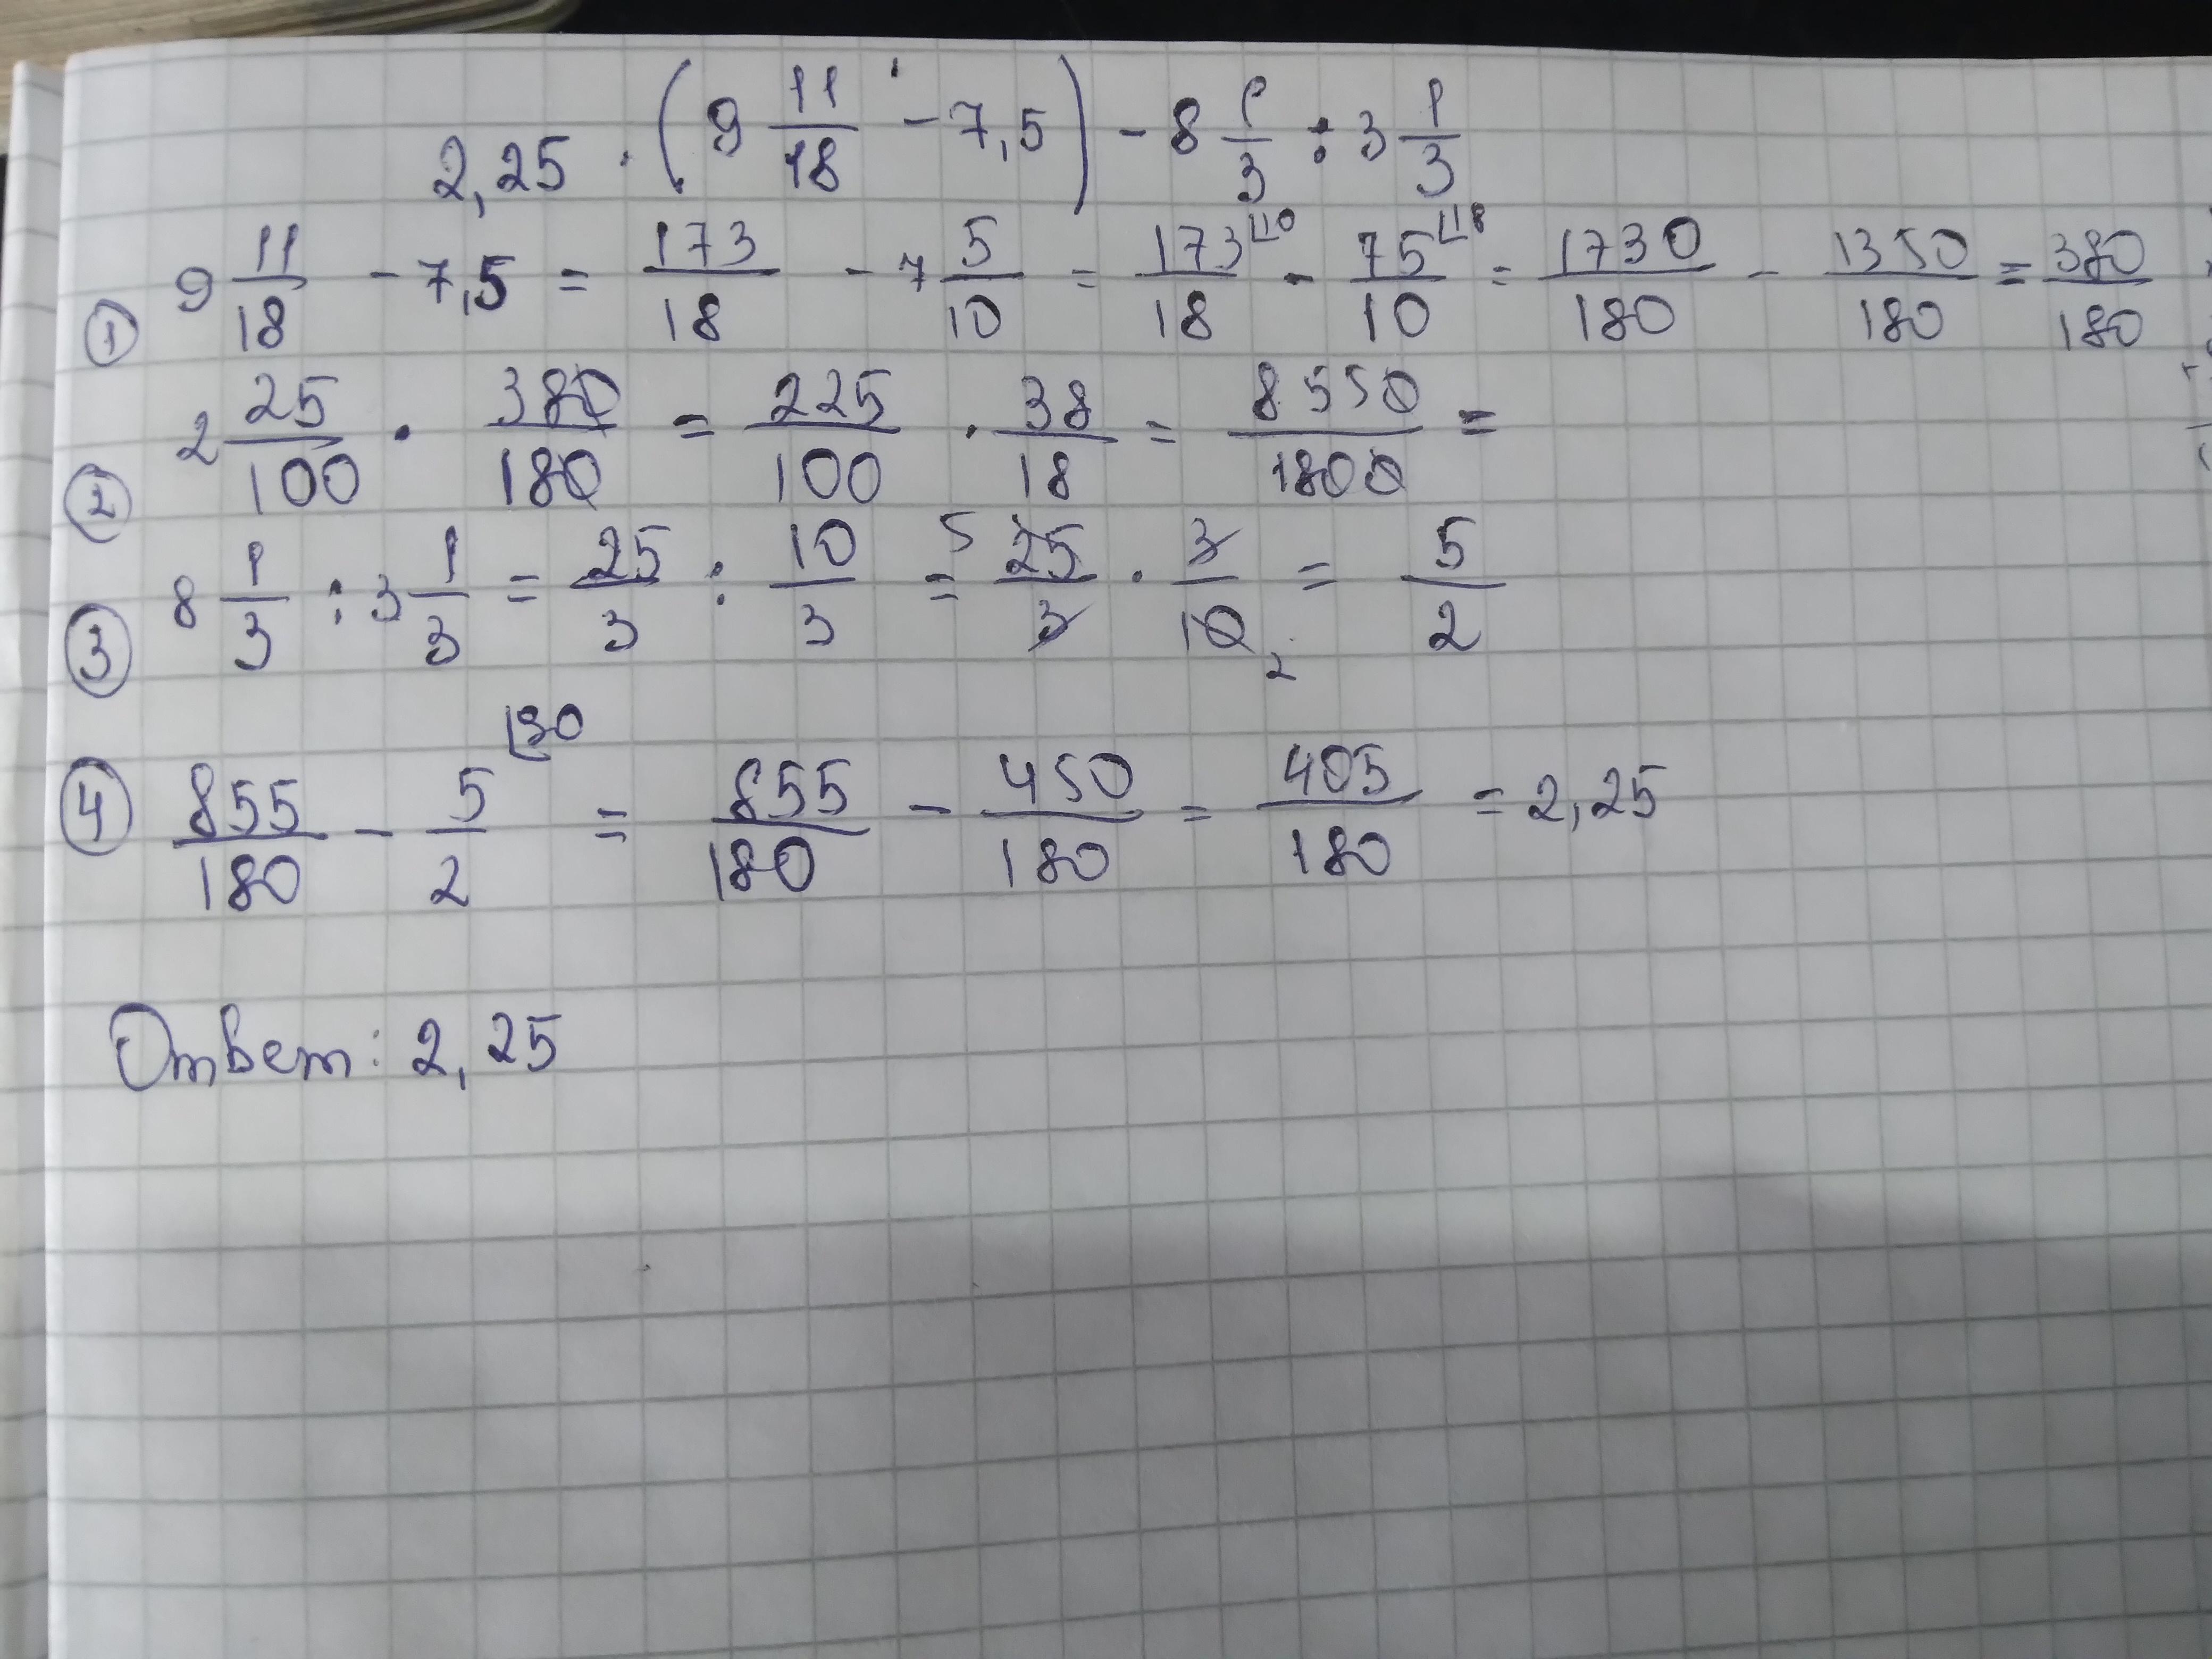 2,25 · (9 11/18 - 7,5) - 8 1/3 : 3 1/3
① 9 11/18 - 7,5 = 173/18 - 7 5/10 = 173/18 ⌊10 - 75/10 ⌊18 = 1730/180 - 1350/180 = 380/180
② 2 25/100 · 380/180 = 225/100 · 38/18 = 8550/1800 =
③ 8 1/3 : 3 1/3 = 25/3 : 10/3 = 5 25/3 · 3/10 2 = 5/2
④ 855/180 - 5/2 ⌊90 = 855/180 - 450/180 = 405/180 = 2,25
Ответ: 2,25